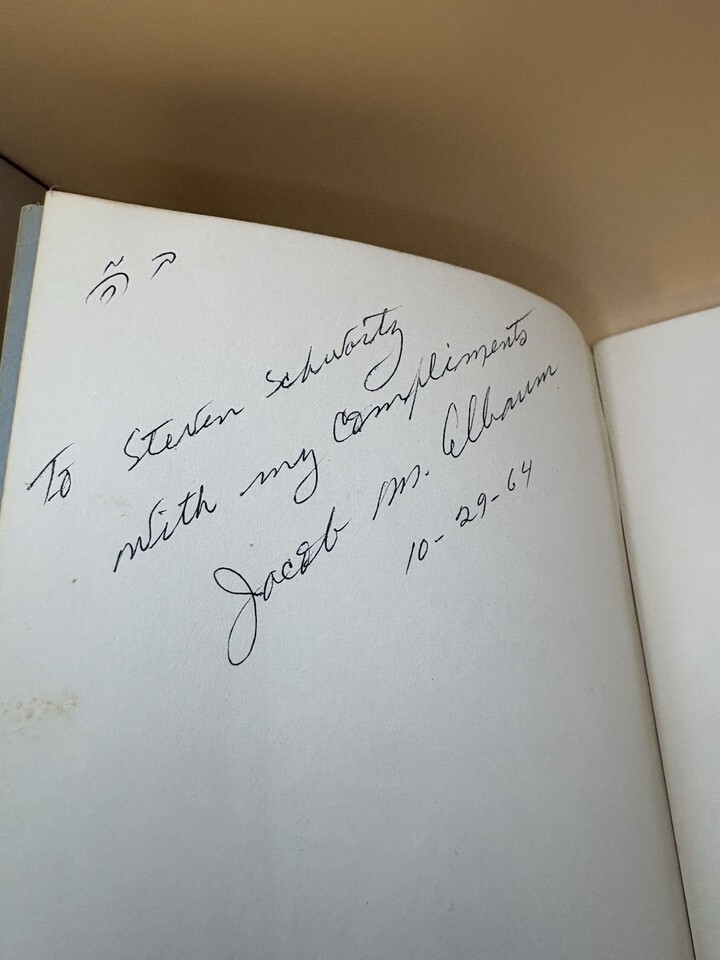 To Steven Schwartz
With my Compliments
Jacob M. Elbaum
10-29-64